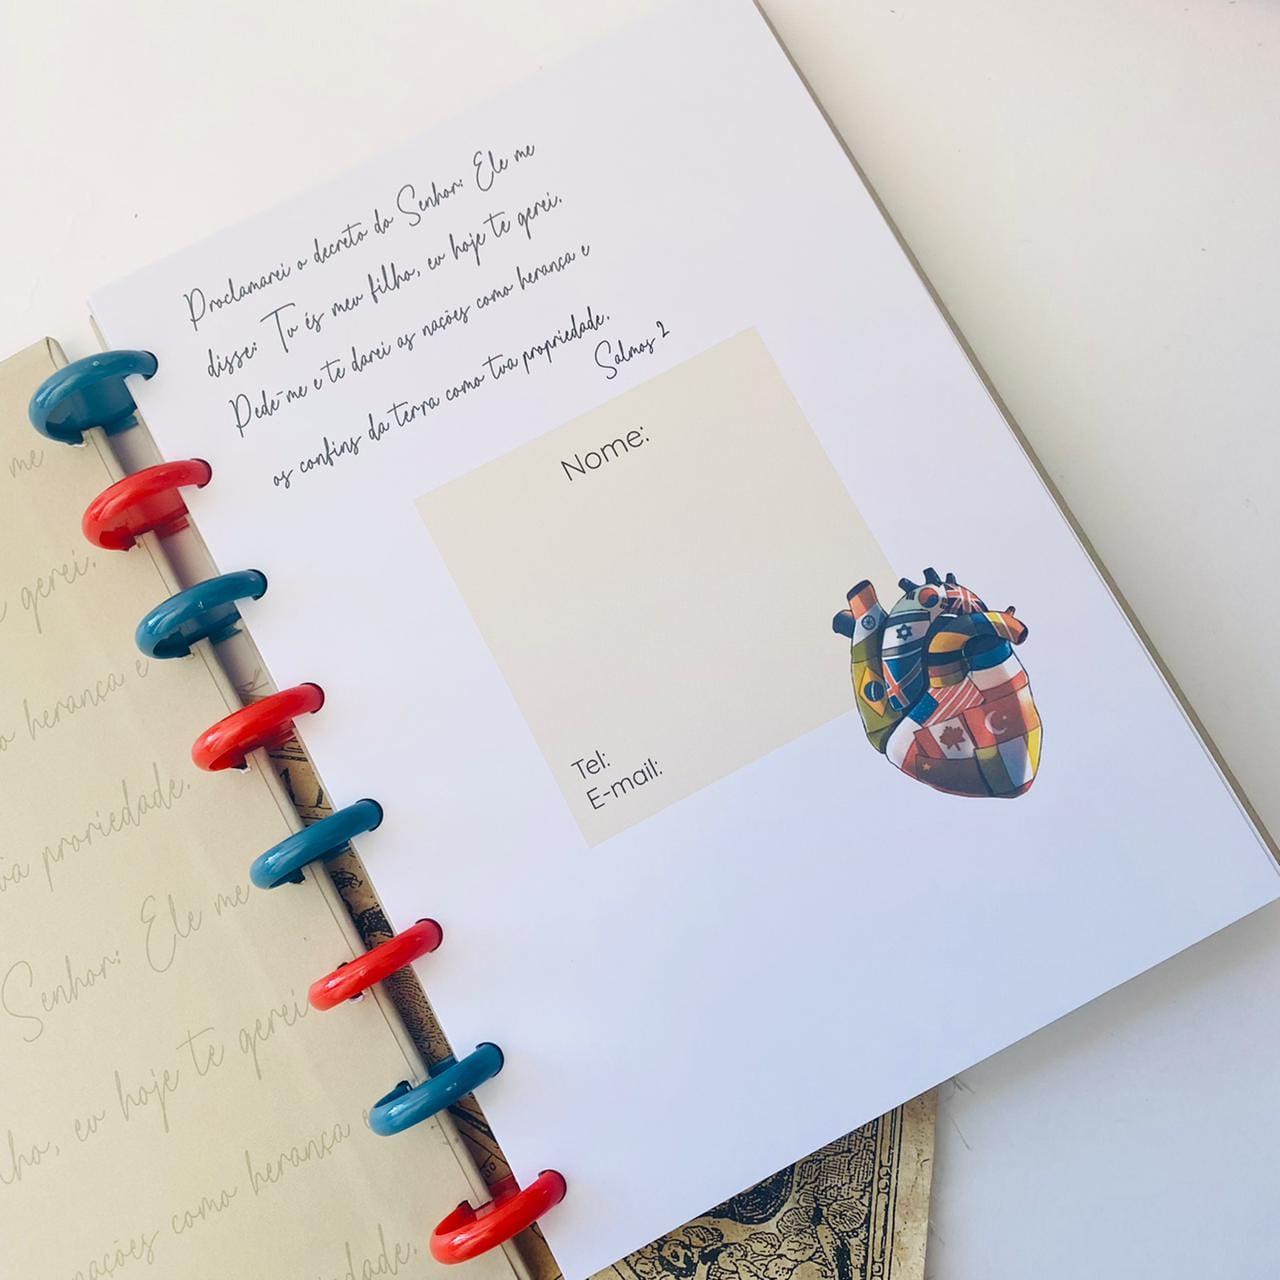 Proclamarei o decreto do Senhor: Ele me
disse: Tu és meu filho, eu hoje te gerei.
Pede-me e te darei as nações como herança e
os confins da terra como tua propriedade.
Salmos 2
Nome:
Tel:
E-mail:
me
gerei.
herança e
propriedade.
Senhor: Ele me
lho, eu hoje te gerei
nações como herança
dade.